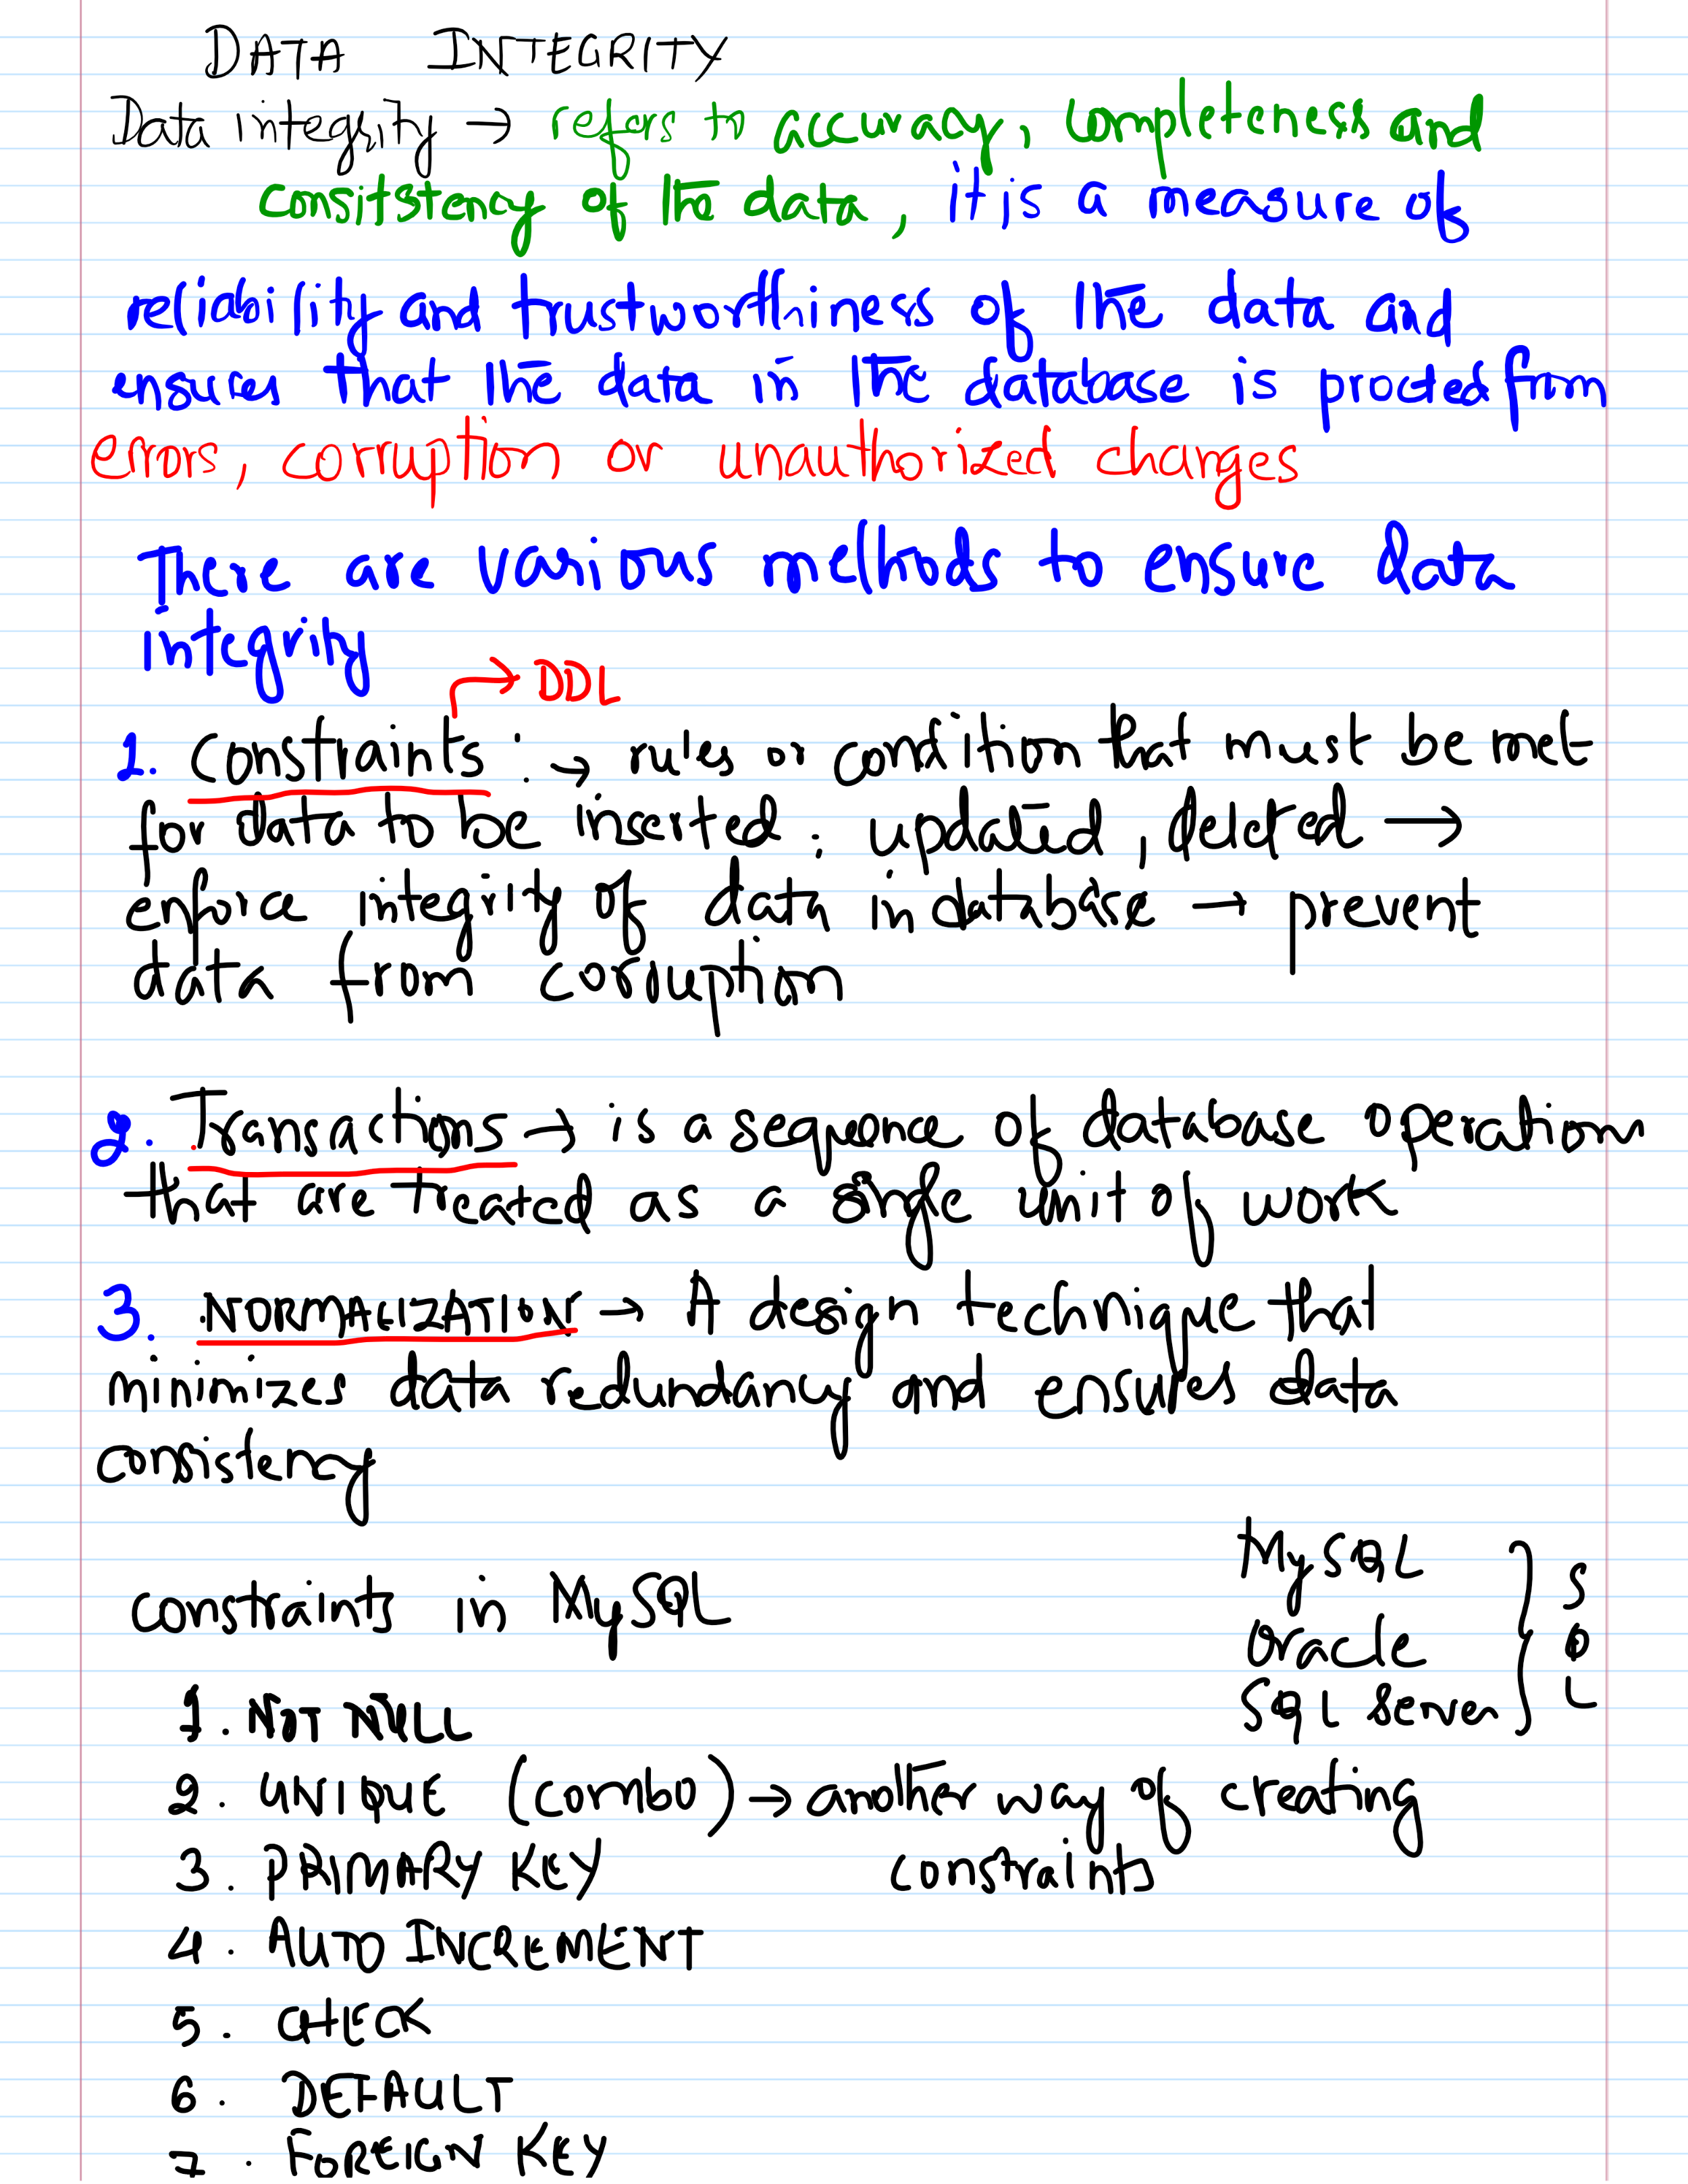 DATA INTEGRITY
Data integrity → refers to accuracy, completeness and
consitstency of the data, it is a measure of
reliability and trustworthiness of the data and
ensures that the data in the database is procted from
errors, corruption or unauthorized charges
There are various methods to ensure data
integrity
→ DDL
1. Constraints : → rules or condition that must be met
for data to be inserted, updated, deleted →
enforce integrity of data in database → prevent
data from corruption
2. Transactions → is a sequence of database operation
that are treated as a single unit of work
3. NORMALIZATION → A design technique that
minimizes data redundancy and ensures data
consistency
MySQL
Oracle
SQL Server
SQL
constraints in MySQL
1. NOT NULL
2. UNIQUE (combo) → another way of creating
constraints
3. PRIMARY KEY
4. AUTO INCREMENT
5. CHECK
6. DEFAULT
7. FOREIGN KEY